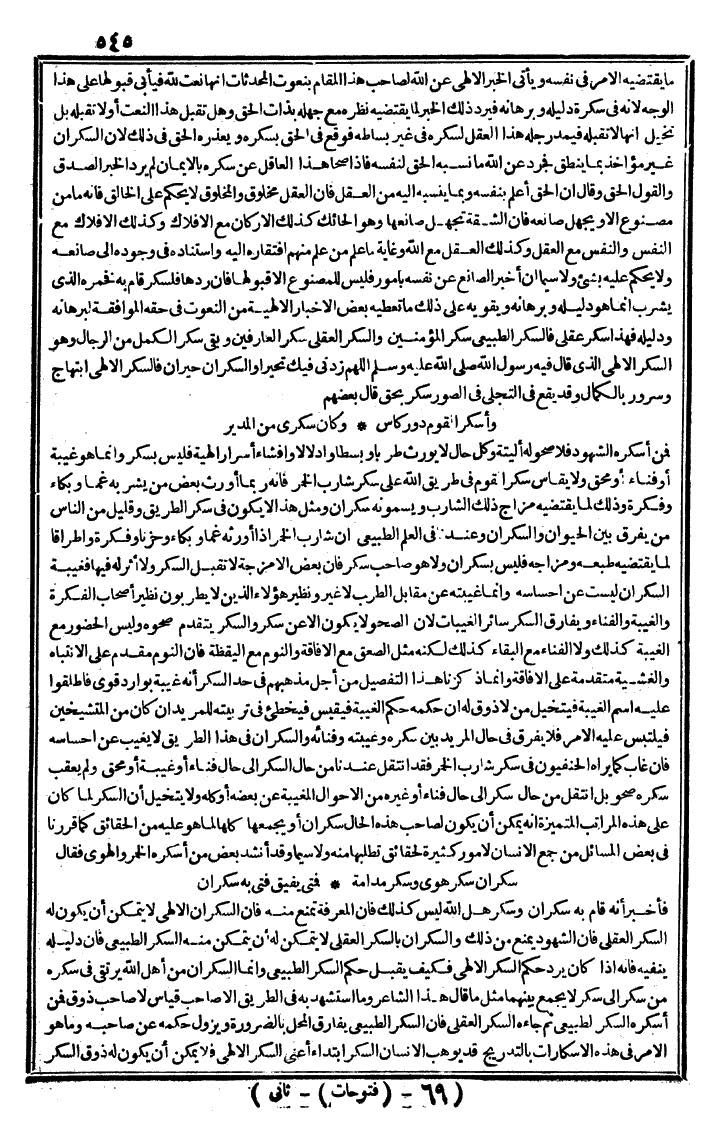 ٥٤٥
ما يقتضيه الامر فى نفسه ويأتى الخبر الالهى عن الله لصاحب هذا المقام بنعوت المحدثات انها نعت لله فيأبى قبولها على هذا
الوجه لانه فى سكرة دليله وبرهانه فيرد ذلك الخبر لما يقتضيه نظره مع جهله بذات الحق وهل تقبل هذا النعت أولا تقبله بل
تخيل انها لا تقبله فيمد رجله هذا العقل لسكره فى غير بساطه فوقع فى الحق بسكره ويعذره الحق فى ذلك لان السكران
غير مؤاخذ بما ينطق فجرد عن الله ما نسبه الحق لنفسه فاذا صحا هذا العاقل عن سكره بالايمان لم يرد الخبر الصدق
والقول الحق وقال ان الحق أعلم بنفسه وبما ينسبه اليه من العقل فان العقل مخلوق والمخلوق لا يحكم على الخالق فانه ما من
مصنوع الا ويجهل صانعه فان الشقة تجهل صانعها وهو الحائك كذلك الاركان مع الافلاك وكذلك الافلاك مع
النفس والنفس مع العقل وكذلك العقل مع الله وغاية ما علم من علم منهم افتقاره اليه واستناده فى وجوده الى صانعه
ولا يحكم عليه بشئ ولا سيما ان أخبر الصانع عن نفسه بامور فليس للمصنوع الا قبولها فان ردها فلسكر قام به فخمره الذى
يشرب انما هو دليله وبرهانه ويقويه على ذلك ما تعطيه بعض الاخبار الالهية من النعوت فى حقه الموافقة لبرهانه
ودليله فهذا سكر عقلى فالسكر الطبيعى سكر المؤمنين والسكر العقلى سكر العارفين وبقى سكر الكمل من الرجال وهو
السكر الالهى الذى قال فيه رسول الله صلى الله عليه وسلم اللهم زدنى فيك تحيرا والسكران حيران فالسكر الالهى ابتهاج
وسرور بالكمال وقد يقع فى التجلى فى الصور سكر بحق قال بعضهم
وأسكر القوم دور كاس * وكان سكرى من المدير
فمن أسكره الشهود فلا صحو له أليتة وكل حال لا يورث طربا وبسطا وادلالا وافشاء أسرار الهية فليس بسكر وانما هو غيبة
أوفناء أومحق ولا يقاس سكر القوم فى طريق الله على سكر شارب الخمر فانه ربما أورث بعض من يشربه غما وبكاء
وفكرة وذلك لما يقتضيه مزاج ذلك الشارب ويسمونه سكران ومثل هذا لا يكون فى سكر الطريق وقليل من الناس
من يفرق بين الحيوان والسكران وعند فى العلم الطبيعى ان شارب الخمر اذا أورثه غما وبكاء وحزنا وفكرة واطراقا
لما يقتضيه طبعه ومزاجه فليس بسكران ولا هو صاحب سكر فان بعض الامزجة لا تقبل السكر ولا أثر له فيها فغيبة
السكران ليست عن احساسه وانما غيبته عن مقابل الطرب لا غير ونظير هؤلاء الذين لا يطربون نظير أصحاب الفكرة
والغيبة والفناء ويفارق السكر سائر الغيبات لان الصحو لا يكون الا عن سكر والسكر يتقدم صحوه وليس الحضور مع
الغيبة كذلك ولا الفناء مع البقاء كذلك لكنه مثل الصعق مع الافاقة والنوم مع اليقظة فان النوم مقدم على الانتباه
والغشية متقدمة على الافاقة وانما ذكرنا هذا التفصيل من أجل مذهبهم فى حد السكر أنه غيبة بوارد قوى فاطلقوا
عليه اسم الغيبة فيتخيل من لا ذوق له ان حكمه حكم الغيبة فيقيس فيخطئ فى تربيته للمريد ان كان من المتشيخين
فيلتبس عليه الامر فلا يفرق فى حال المريد بين سكره وغيبته وفنائه والسكران فى هذا الطريق لا يغيب عن احساسه
فان غاب كما يراه الحنفيون فى سكر شارب الخمر فقد انتقل عندنا من حال السكر الى حال فناء أو غيبة أو محق ولم يعقب
سكره صحو بل انتقل من حال سكر الى حال فناء أو غيره من الاحوال المغيبة عن بعضه أو كله ولا يتخيل أن السكر لما كان
على هذه المراتب المتميزة انه يمكن أن يكون لصاحب هذه الحال سكران أو يجمعها كلها لما هو عليه من الحقائق كما قررنا
فى بعض المسائل من جمع الانسان لامور كثيرة لحقائق تطلبها منه ولا سيما وقد أنشد بعض من أسكره الخمر والهوى فقال
سكران سكر هوى وسكر مدامة * فمتى يفيق فتى به سكران
فأخبر أنه قام به سكران وسكر هل الله ليس كذلك فان المعرفة تمنع منه فان السكران الالهى لا يتمكن أن يكون له
السكر العقلى فان الشهود يمنع من ذلك والسكران بالسكر العقلى لا يتمكن له أن يتمكن منه السكر الطبيعى فان دليله
ينفيه فانه اذا كان يرد حكم السكر الالهى فكيف يقبل حكم السكر الطبيعى وانما السكران من أهل الله يرتقى فى سكره
من سكر الى سكر لا يجمع بينهما مثل ما قال هذا الشاعر وما استشهد به فى الطريق الا صاحب قياس لا صاحب ذوق فمن
أسكره السكر الطبيعى ثم جاءه السكر العقلى فان السكر الطبيعى يفارق المحل بالضرورة ويزول حكمه عن صاحبه وما هو
الامر فى هذه الاسكارات بالتدريج قد يوهب الانسان السكر ابتداء أعنى السكر الالهى فلا يمكن أن يكون له ذوق السكر
( ٦٩ - (فتوحات) - ثانى )